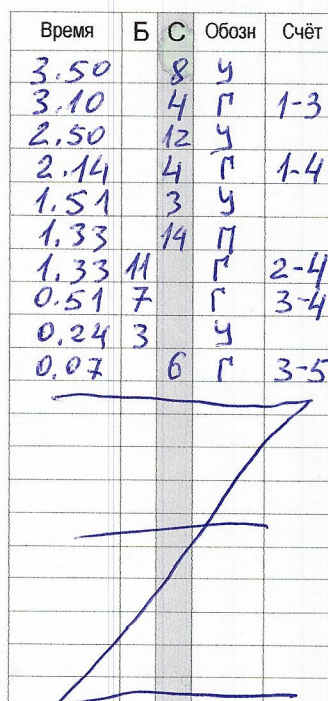 Время Б С Обозн Счёт
3.50 8 У
3.10 4 Г 1-3
2.50 12 У
2.14 4 Г 1-4
1.51 3 У
1.33 14 П
1.33 11 Г 2-4
0.51 7 Г 3-4
0.24 3 У
0.07 6 Г 3-5